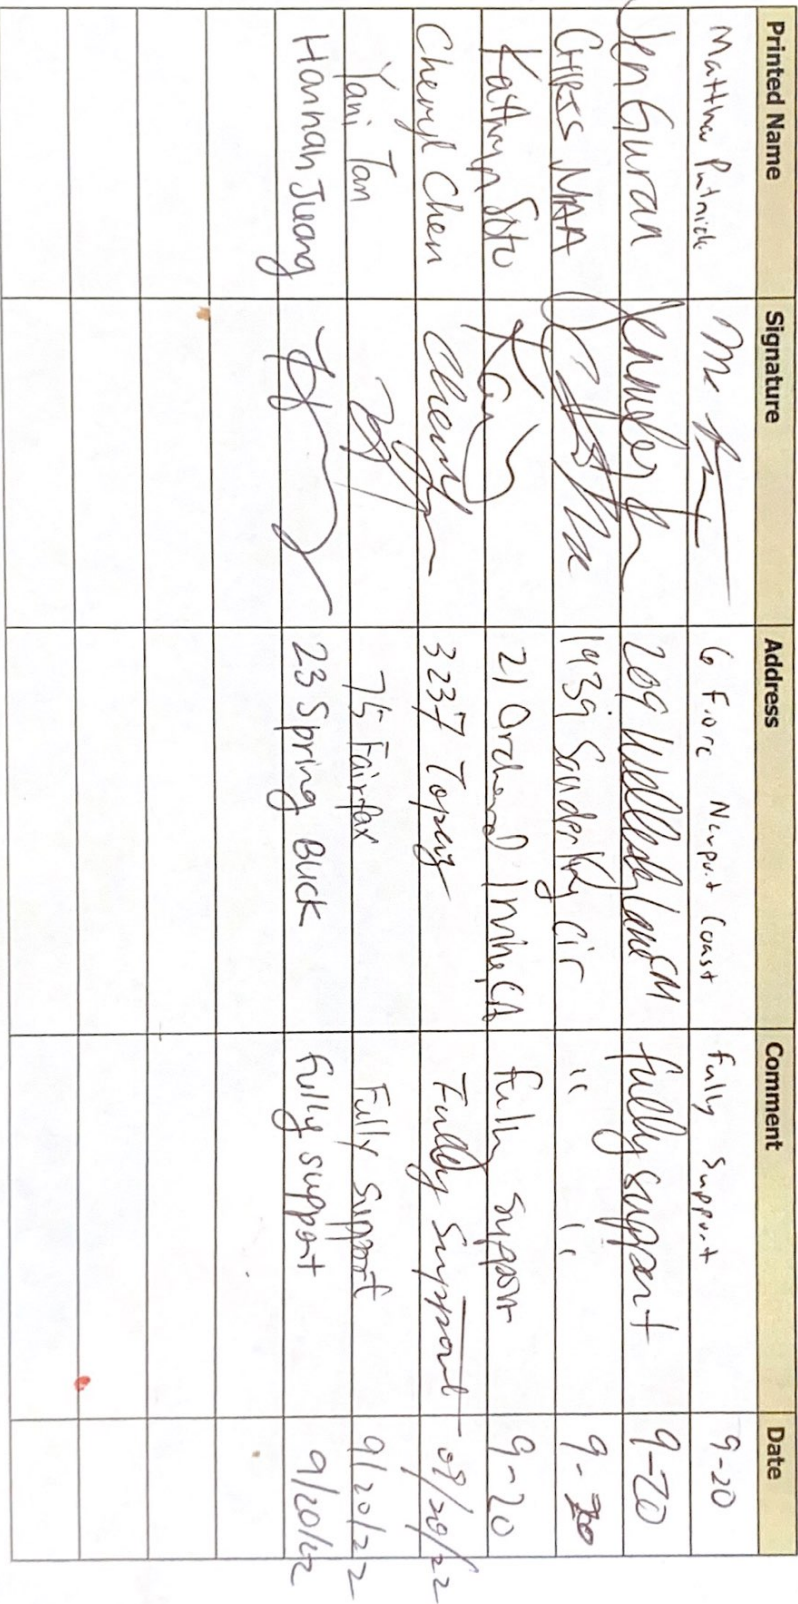 Printed Name Signature Address Comment Date
Matthew 6 Fiore Newport Coast Fully Support 9-20
Jen Guran Jennifer 209 Lane fully support 9-20
CHRIS MAA 1939 Sanderling Cir " " 9-20
Kathryn Soto 21 Orchard Irvine, CA fully support 9-20
Cheryl Chen Cheryl Chen 3237 Topaz Fully Support 09/20/22
Yani Tan 75 Fairfax Fully Support 9/20/22
Hannah Jueang 23 Spring Buck fully support 9/20/22